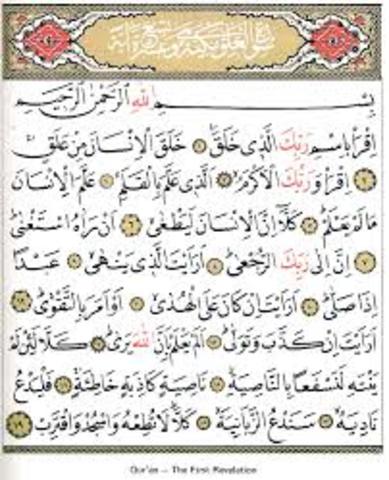 سورة العلق مكية وهي تسع عشرة آية
بِسْمِ اللهِ الرَّحْمٰنِ الرَّحِيمِ
اِقْرَأْ بِاسْمِ رَبِّكَ الَّذِى خَلَقَ ۝١ خَلَقَ الْاِنْسَانَ مِنْ عَلَقٍ
۝٢ اِقْرَأْ وَرَبُّكَ الْاَكْرَمُ ۝٣ اَلَّذِى عَلَّمَ بِالْقَلَمِ ۝٤ عَلَّمَ الْاِنْسَانَ
مَا لَمْ يَعْلَمْ ۝٥ كَلَّا اِنَّ الْاِنْسَانَ لَيَطْغٰى ۝٦ اَنْ رَاٰهُ اسْتَغْنٰى
۝٧ اِنَّ اِلٰى رَبِّكَ الرُّجْعٰى ۝٨ اَرَاَيْتَ الَّذِى يَنْهٰى ۝٩ عَبْدًا
اِذَا صَلّٰى ۝١٠ اَرَاَيْتَ اِنْ كَانَ عَلَى الْهُدٰى ۝١١ اَوْ اَمَرَ بِالتَّقْوٰى ۝١٢
اَرَاَيْتَ اِنْ كَذَّبَ وَتَوَلّٰى ۝١٣ اَلَمْ يَعْلَمْ بِاَنَّ اللهَ يَرٰى ۝١٤ كَلَّا لَئِنْ لَمْ
يَنْتَهِ لَنَسْفَعًا بِالنَّاصِيَةِ ۝١٥ نَاصِيَةٍ كَاذِبَةٍ خَاطِئَةٍ ۝١٦ فَلْيَدْعُ
نَادِيَهُ ۝١٧ سَنَدْعُ الزَّبَانِيَةَ ۝١٨ كَلَّا لَا تُطِعْهُ وَاسْجُدْ وَاقْتَرِبْ ۝١٩
Qur'an — The First Revelation